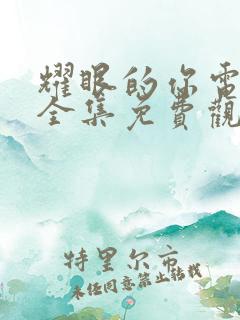 耀眼的你電
全集免費觀
特里尔市
未经同意禁止转载